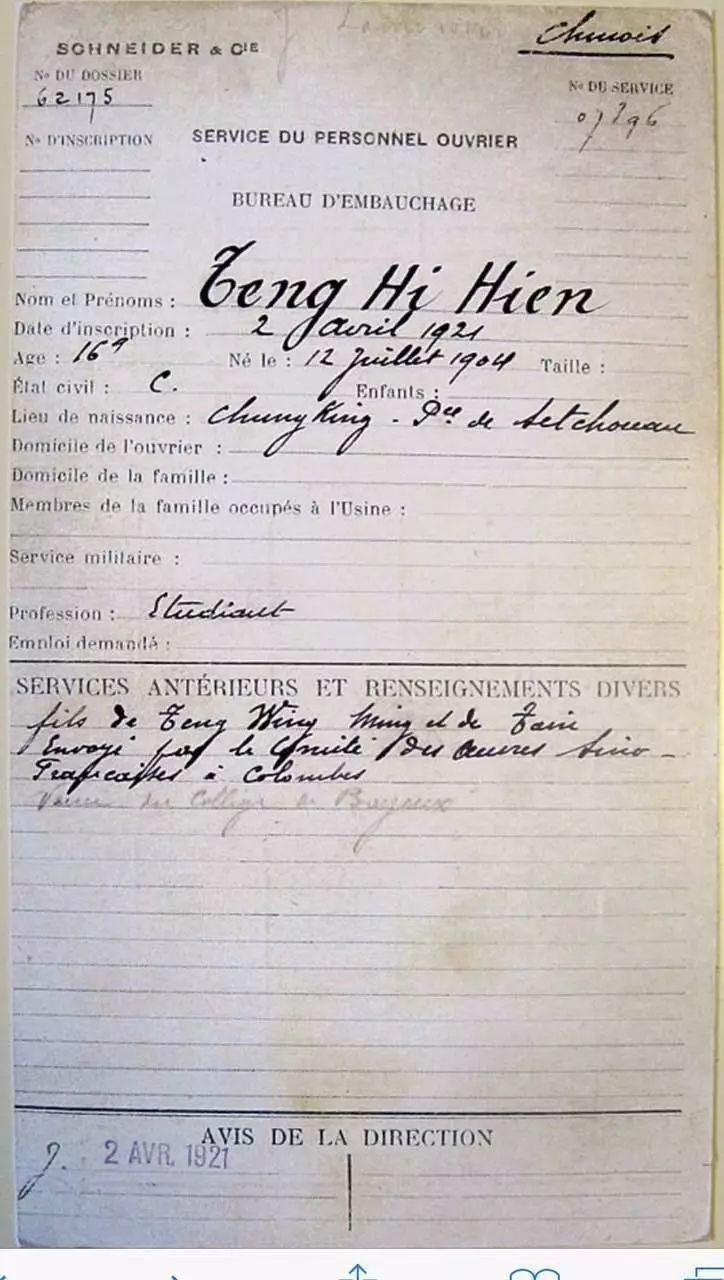 Chinois
SCHNEIDER & CIE
No DU DOSSIER
62175
No DU SERVICE
07396
No D'INSCRIPTION
SERVICE DU PERSONNEL OUVRIER
BUREAU D'EMBAUCHAGE
Nom et Prénoms : Teng Hi Hien
Date d'inscription : 2 avril 1921
Age : 16a Né le : 12 Juillet 1904 Taille :
État civil : C. Enfants :
Lieu de naissance : Chung King - Pce de Setchouan
Domicile de l'ouvrier :
Domicile de la famille :
Membres de la famille occupés à l'Usine :
Service militaire :
Profession : Etudiant
Emploi demandé :
SERVICES ANTÉRIEURS ET RENSEIGNEMENTS DIVERS
fils de Teng Wing Ming et de
Envoyé par le Comité des Œuvres Sino-
Françaises à Colombes
Venu du Collège de Bayeux
AVIS DE LA DIRECTION
2 AVR. 1921